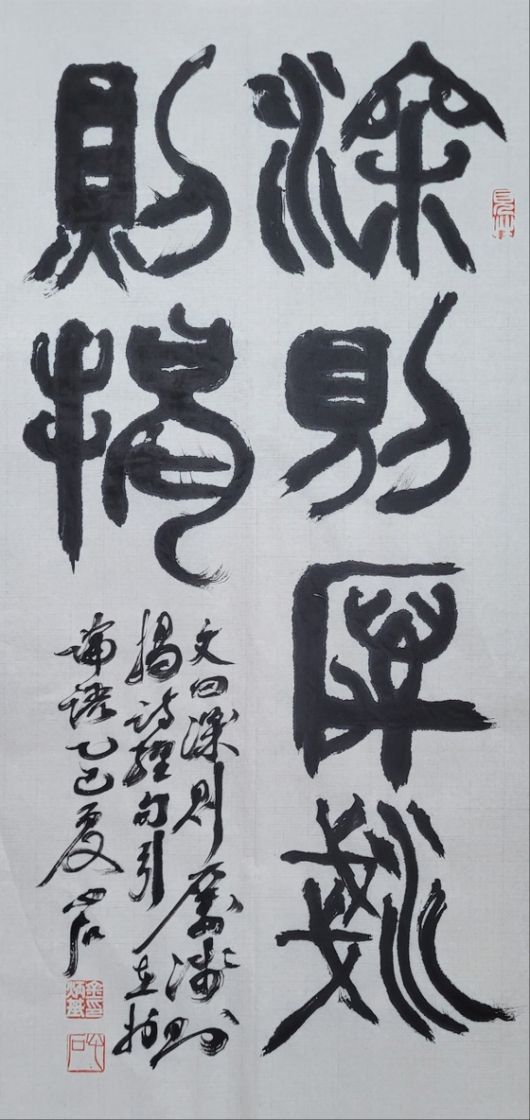 深則厲淺
則揭
文曰深则厲淺則
揭詩經句引在於
論語乙巳夏